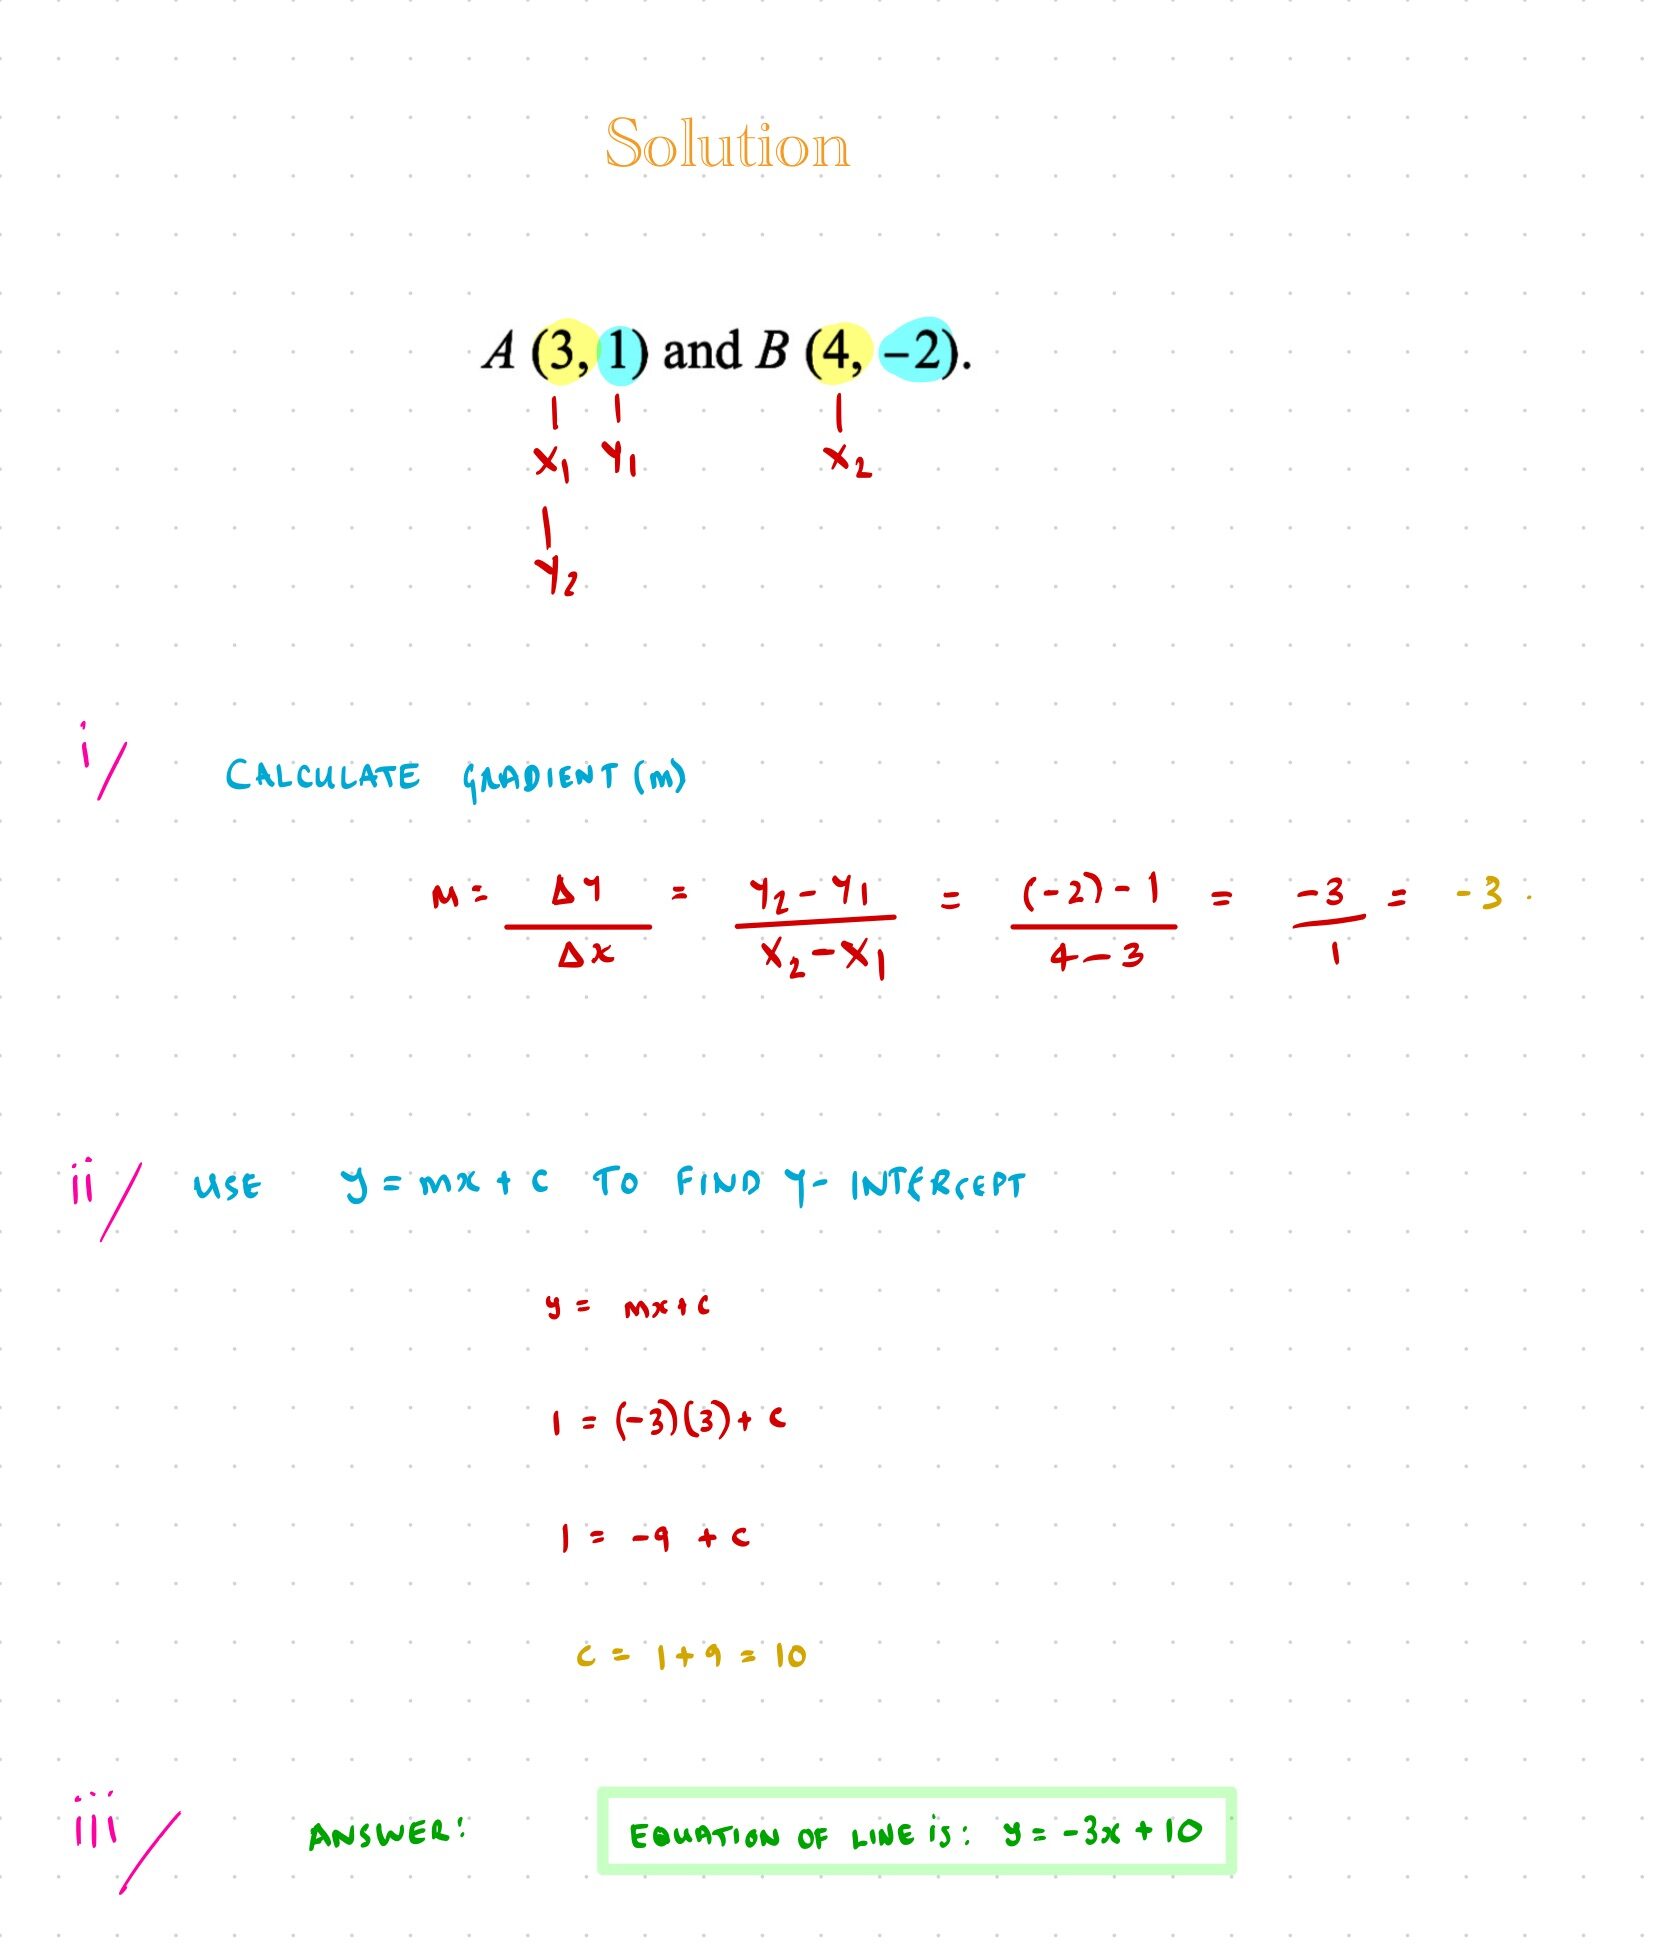 Solution
A (3, 1) and B (4, −2).
x₁ y₁ x₂
y₂
i/ CALCULATE GRADIENT (m)
M = Δy/Δx = (y₂ − y₁)/(x₂ − x₁) = ((-2) - 1)/(4 - 3) = -3/1 = -3.
ii/ USE y = mx + c TO FIND Y- INTERCEPT
y = mx + c
1 = (-3)(3) + c
1 = -9 + c
c = 1 + 9 = 10
iii/ ANSWER: EQUATION OF LINE is: y = -3x + 10